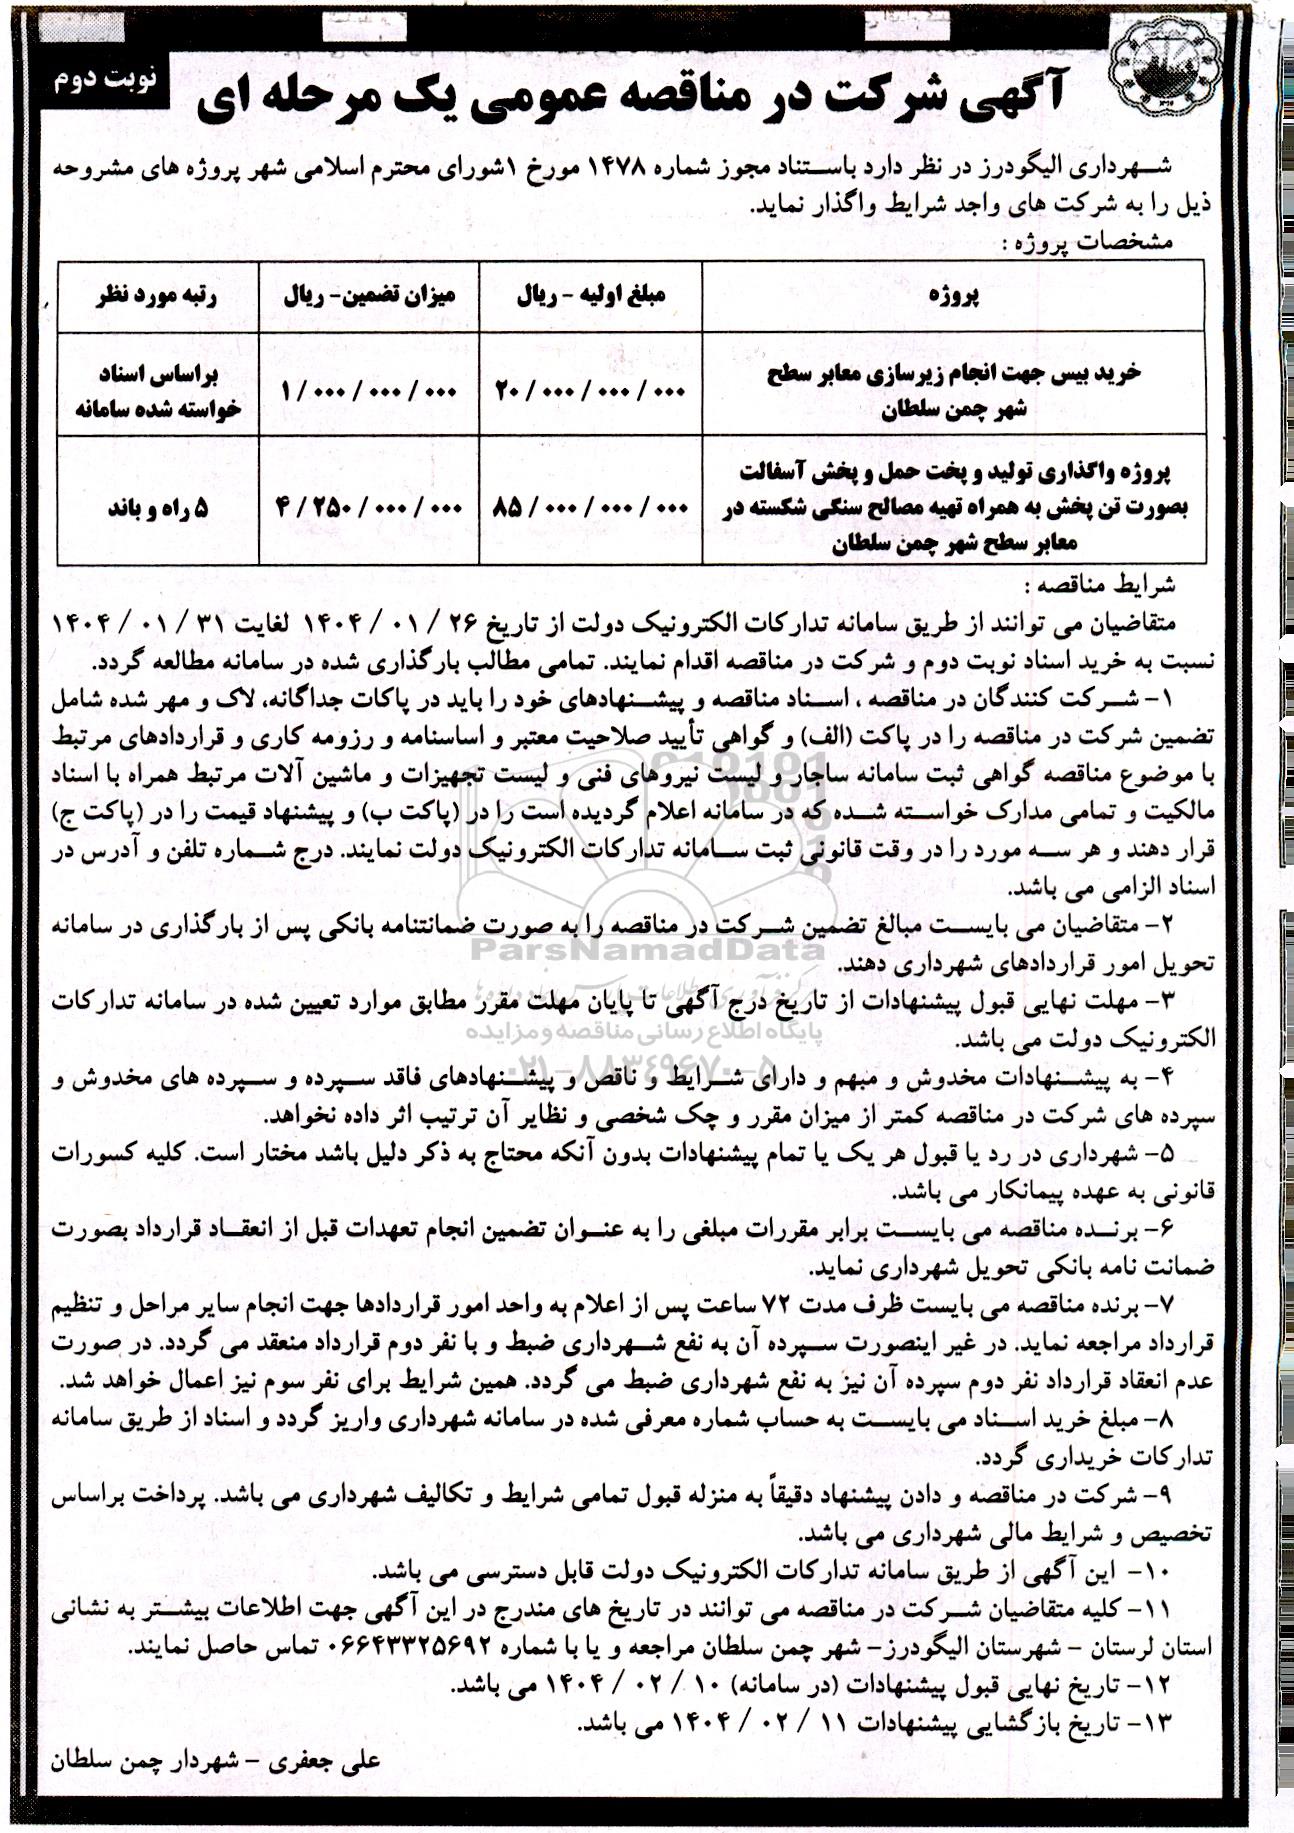 نوبت دوم
آگهی شرکت در مناقصه عمومی یک مرحله ای
شهرداری الیگودرز در نظر دارد باستناد مجوز شماره ۱۴۷۸ مورخ ۱شورای محترم اسلامی شهر پروژه های مشروحه
ذیل را به شرکت های واجد شرایط واگذار نماید.
مشخصات پروژه :
پروژه
مبلغ اولیه - ریال
میزان تضمین- ریال
رتبه مورد نظر
خرید بیس جهت انجام زیرسازی معابر سطح
شهر چمن سلطان
۲۰ / ۰۰۰ / ۰۰۰ / ۰۰۰
۱ / ۰۰۰ / ۰۰۰ / ۰۰۰
براساس اسناد
خواسته شده سامانه
پروژه واگذاری تولید و پخت حمل و پخش آسفالت
بصورت تن پخش به همراه تهیه مصالح سنگی شکسته در
معابر سطح شهر چمن سلطان
۸۵ / ۰۰۰ / ۰۰۰ / ۰۰۰
۴ / ۲۵۰ / ۰۰۰ / ۰۰۰
۵ راه و باند
شرایط مناقصه :
متقاضیان می توانند از طریق سامانه تدارکات الکترونیک دولت از تاریخ ۲۶ / ۰۱ / ۱۴۰۴ لغایت ۳۱ / ۰۱ / ۱۴۰۴
نسبت به خرید اسناد نوبت دوم و شرکت در مناقصه اقدام نمایند. تمامی مطالب بارگذاری شده در سامانه مطالعه گردد.
۱- شرکت کنندگان در مناقصه ، اسناد مناقصه و پیشنهادهای خود را باید در پاکات جداگانه، لاک و مهر شده شامل
تضمین شرکت در مناقصه را در پاکت (الف) و گواهی تأیید صلاحیت معتبر و اساسنامه و رزومه کاری و قراردادهای مرتبط
با موضوع مناقصه گواهی ثبت سامانه ساجار و لیست نیروهای فنی و لیست تجهیزات و ماشین آلات مرتبط همراه با اسناد
مالکیت و تمامی مدارک خواسته شده که در سامانه اعلام گردیده است را در (پاکت ب) و پیشنهاد قیمت را در (پاکت ج)
قرار دهند و هر سه مورد را در وقت قانونی ثبت سامانه تدارکات الکترونیک دولت نمایند. درج شماره تلفن و آدرس در
اسناد الزامی می باشد.
۲- متقاضیان می بایست مبالغ تضمین شرکت در مناقصه را به صورت ضمانتنامه بانکی پس از بارگذاری در سامانه
تحویل امور قراردادهای شهرداری دهند.
ParsNamadData
۳- مهلت نهایی قبول پیشنهادات از تاریخ درج آگهی تا پایان مهلت مقرر مطابق موارد تعیین شده در سامانه تدارکات
الکترونیک دولت می باشد.
پایگاه اطلاع رسانی مناقصه و مزایده
۰۲۱-۸۸۳۴۹۶۷۰-۵
۴- به پیشنهادات مخدوش و مبهم و دارای شرایط و ناقص و پیشنهادهای فاقد سپرده و سپرده های مخدوش و
سپرده های شرکت در مناقصه کمتر از میزان مقرر و چک شخصی و نظایر آن ترتیب اثر داده نخواهد.
۵- شهرداری در رد یا قبول هر یک یا تمام پیشنهادات بدون آنکه محتاج به ذکر دلیل باشد مختار است. کلیه کسورات
قانونی به عهده پیمانکار می باشد.
۶- برنده مناقصه می بایست برابر مقررات مبلغی را به عنوان تضمین انجام تعهدات قبل از انعقاد قرارداد بصورت
ضمانت نامه بانکی تحویل شهرداری نماید.
۷- برنده مناقصه می بایست ظرف مدت ۷۲ ساعت پس از اعلام به واحد امور قراردادها جهت انجام سایر مراحل و تنظیم
قرارداد مراجعه نماید. در غیر اینصورت سپرده آن به نفع شهرداری ضبط و با نفر دوم قرارداد منعقد می گردد. در صورت
عدم انعقاد قرارداد نفر دوم سپرده آن نیز به نفع شهرداری ضبط می گردد. همین شرایط برای نفر سوم نیز اعمال خواهد شد.
۸- مبلغ خرید اسناد می بایست به حساب شماره معرفی شده در سامانه شهرداری واریز گردد و اسناد از طریق سامانه
تدارکات خریداری گردد.
۹- شرکت در مناقصه و دادن پیشنهاد دقیقاً به منزله قبول تمامی شرایط و تکالیف شهرداری می باشد. پرداخت براساس
تخصیص و شرایط مالی شهرداری می باشد.
۱۰- این آگهی از طریق سامانه تدارکات الکترونیک دولت قابل دسترسی می باشد.
۱۱- کلیه متقاضیان شرکت در مناقصه می توانند در تاریخ های مندرج در این آگهی جهت اطلاعات بیشتر به نشانی
استان لرستان - شهرستان الیگودرز- شهر چمن سلطان مراجعه و یا با شماره ۰۶۶۴۳۳۲۵۶۹۲ تماس حاصل نمایند.
۱۲- تاریخ نهایی قبول پیشنهادات (در سامانه) ۱۰ / ۰۲ / ۱۴۰۴ می باشد.
۱۳- تاریخ بازگشایی پیشنهادات ۱۱ / ۰۲ / ۱۴۰۴ می باشد.
علی جعفری - شهردار چمن سلطان